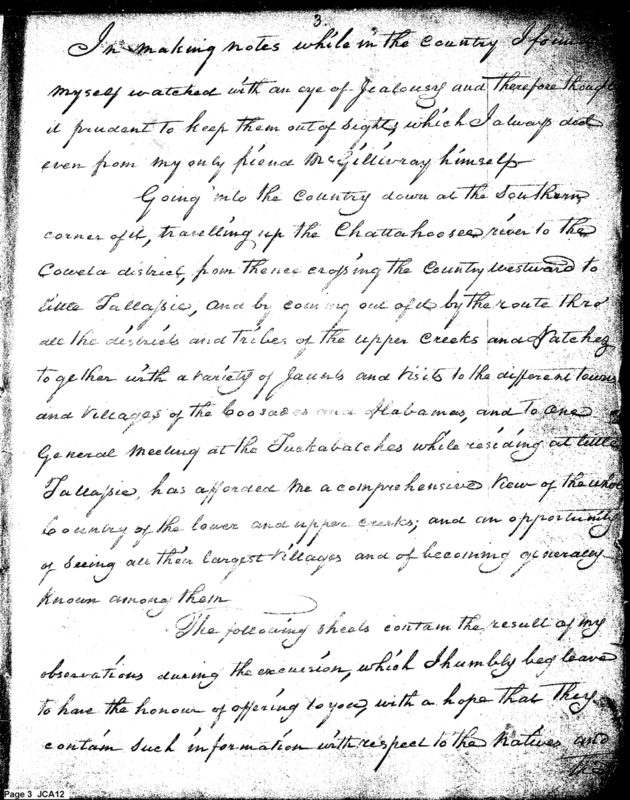 3.
In making notes while in the Country I found
myself watched with an eye of Jealousy and therefore thought
it prudent to keep them out of sight, which I always did
even from my only friend McGillivray himself
Going into the Country down at the Southern
corner of it, travelling up the Chattahoosee river to the
Coweta district, from thence crossing the Country westward to
little Tallassie, and by coming out of it by the route thro'
all the districts and tribes of the upper Creeks and Natchez
together with a variety of Jaunts and visits to the different towns
and villages of the Coosades and Alabamas, and to one
General Meeting at the Tuckabatches while residing at little
Tallassie, has afforded me a comprehensive view of the whole
Country of the lower and upper creeks; and an opportunity
of seeing all their largest villages and of becoming generally
known among them
The following sheets contain the result of my
observations during the excursion, which I humbly beg leave
to have the honour of offering to you, with a hope that They
contain such information with respect to the Natives and
Page 3 JCA12